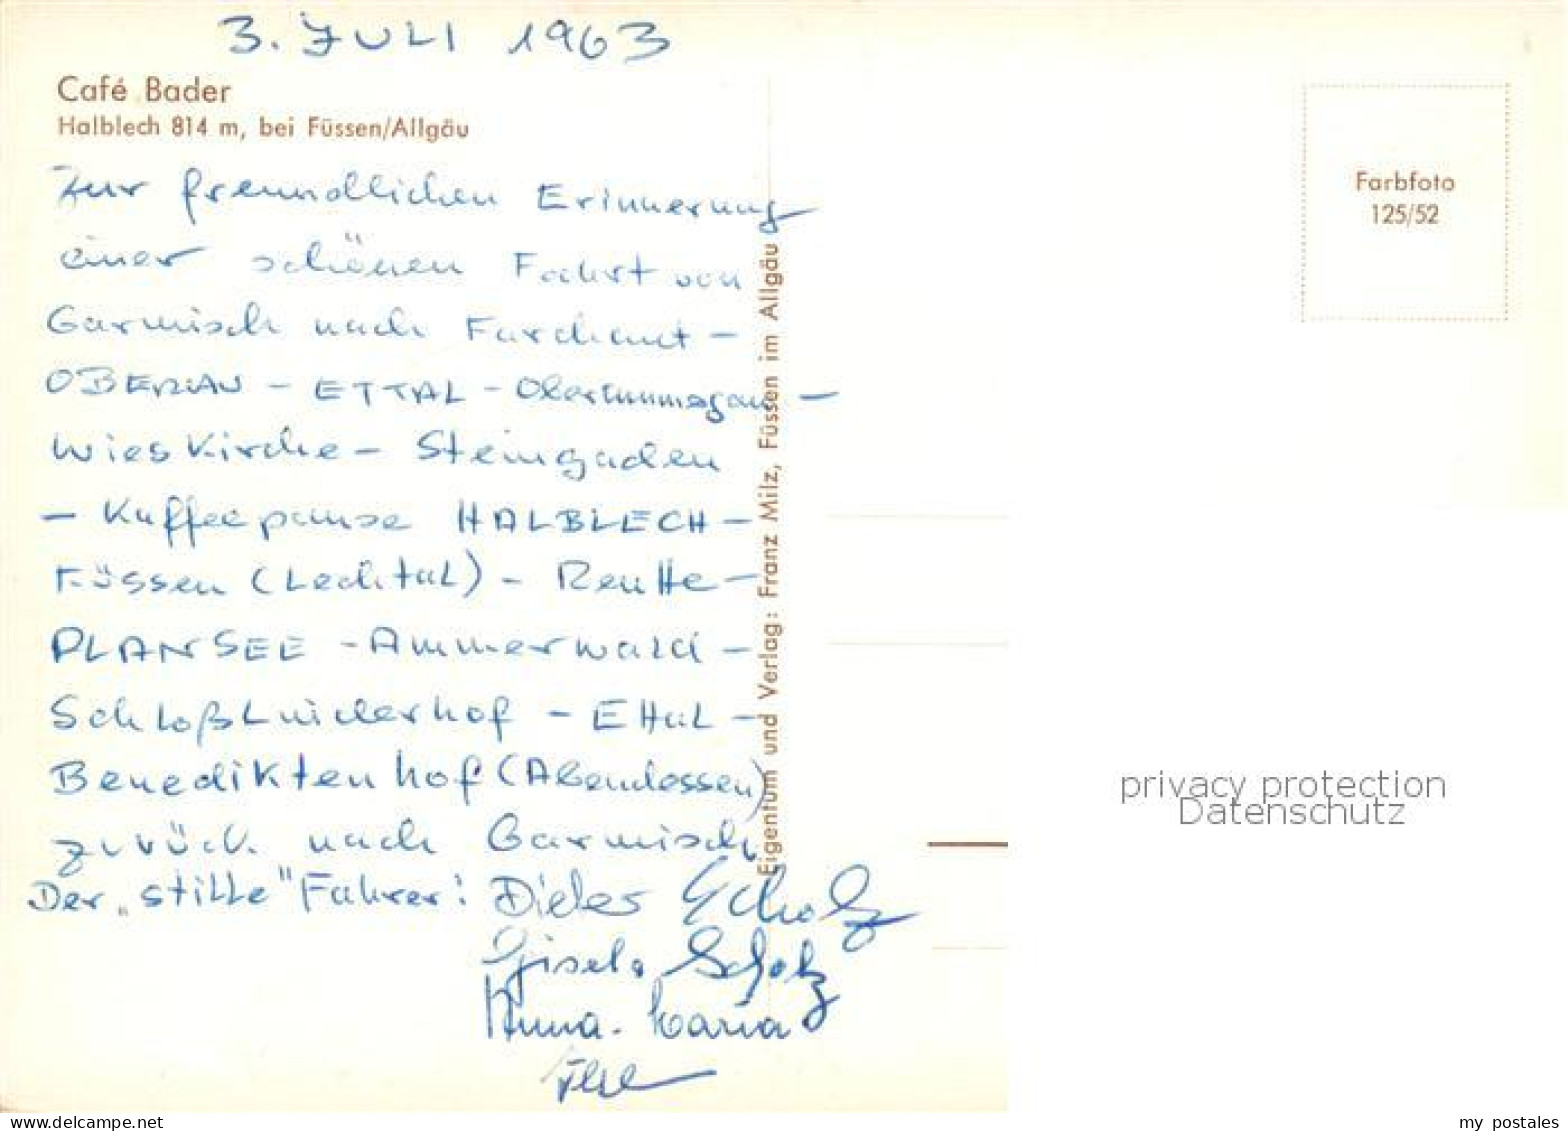 3. JULI 1963
Café Bader
Halblech 814 m, bei Füssen/Allgäu
Zur freundlichen Erinnerung
einer schönen Fahrt von
Garmisch nach Farchant -
OBERAU - ETTAL - Oberammergau -
Wieskirche - Steingaden
- Kaffeepause HALBLECH -
Füssen (Lechtal) - Reutte -
PLANSEE - Ammerwald -
Schloß Linderhof - Ettal -
Benediktenhof (Abendessen)
zurück nach Garmisch
Der "stille" Fahrer: Dieter Scholz
Gisela Scholz
Anna-Maria
Ilse
Eigentum und Verlag: Franz Milz, Füssen im Allgäu
Farbfoto
125/52
privacy protection
Datenschutz
my postales